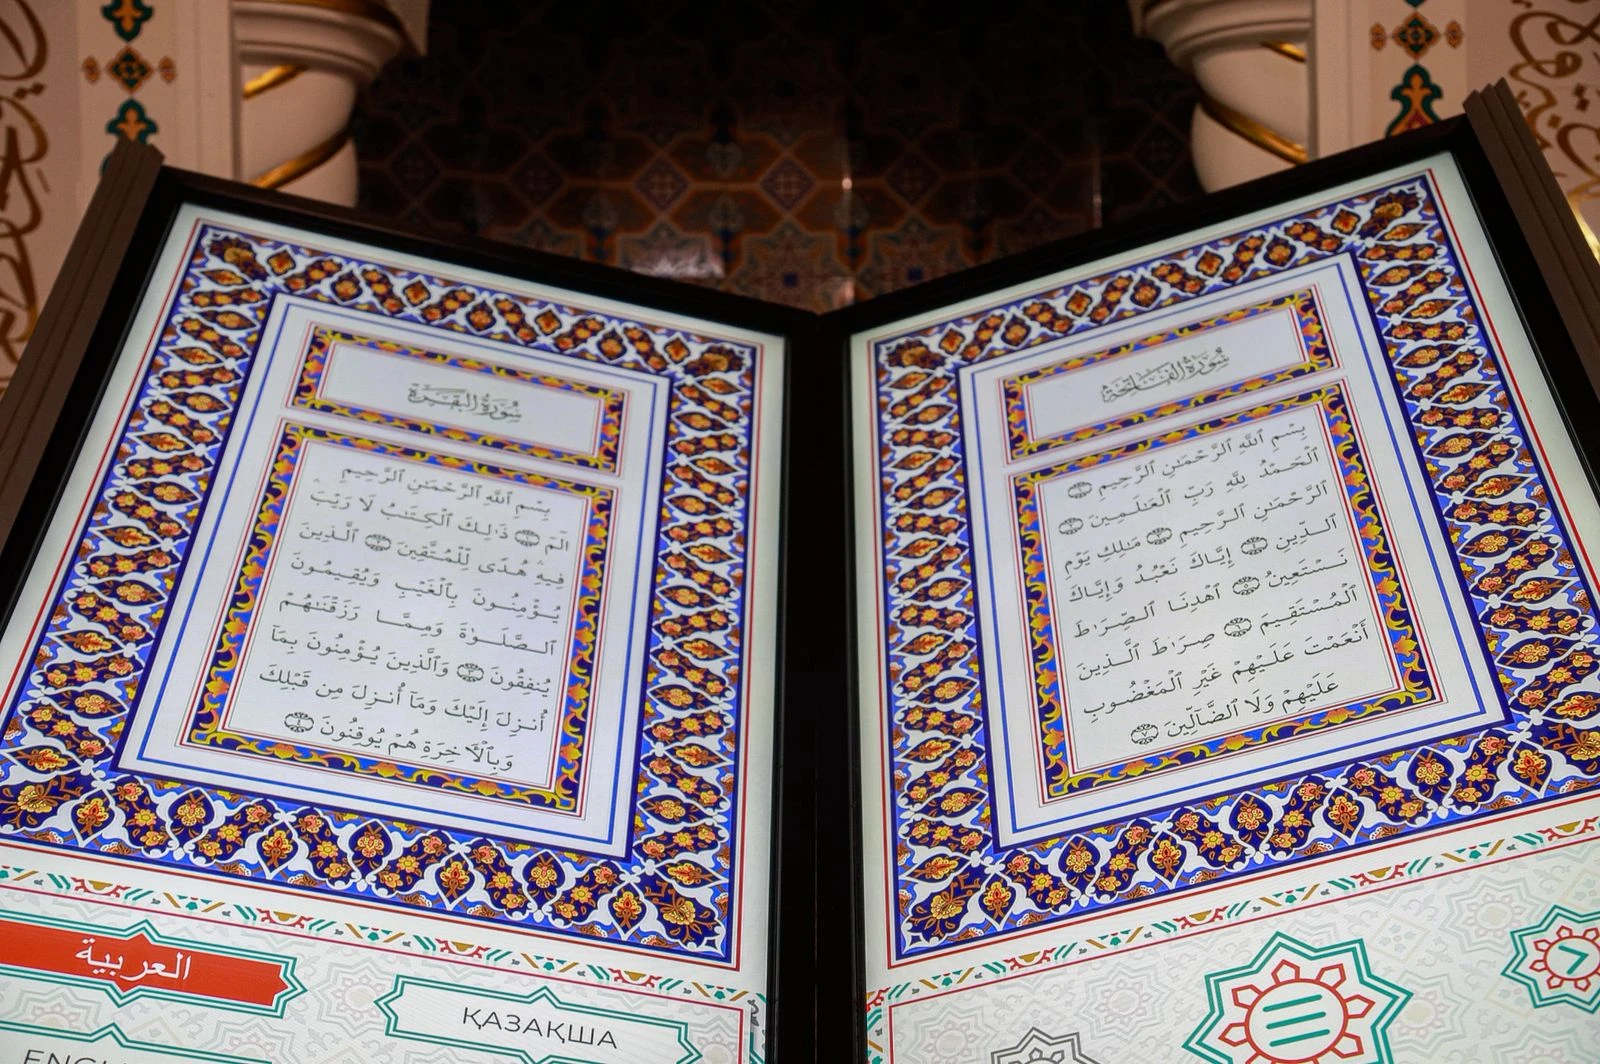 سُورَةُ الفَاتِحَةِ
بِسْمِ ٱللَّهِ ٱلرَّحْمَٰنِ ٱلرَّحِيمِ ١
ٱلْحَمْدُ لِلَّهِ رَبِّ ٱلْعَٰلَمِينَ ٢
ٱلرَّحْمَٰنِ ٱلرَّحِيمِ ٣ مَٰلِكِ يَوْمِ
ٱلدِّينِ ٤ إِيَّاكَ نَعْبُدُ وَإِيَّاكَ
نَسْتَعِينُ ٥ ٱهْدِنَا ٱلصِّرَٰطَ
ٱلْمُسْتَقِيمَ ٦ صِرَٰطَ ٱلَّذِينَ
أَنْعَمْتَ عَلَيْهِمْ غَيْرِ ٱلْمَغْضُوبِ
عَلَيْهِمْ وَلَا ٱلضَّآلِّينَ ٧
سُورَةُ البَقَرَةِ
بِسْمِ ٱللَّهِ ٱلرَّحْمَٰنِ ٱلرَّحِيمِ
الٓمٓ ١ ذَٰلِكَ ٱلْكِتَٰبُ لَا رَيْبَۛ
فِيهِۛ هُدًى لِّلْمُتَّقِينَ ٢ ٱلَّذِينَ
يُؤْمِنُونَ بِٱلْغَيْبِ وَيُقِيمُونَ
ٱلصَّلَوٰةَ وَمِمَّا رَزَقْنَٰهُمْ
يُنفِقُونَ ٣ وَٱلَّذِينَ يُؤْمِنُونَ بِمَآ
أُنزِلَ إِلَيْكَ وَمَآ أُنزِلَ مِن قَبْلِكَ
وَبِٱلْأَخِرَةِ هُمْ يُوقِنُونَ ٤
العربية
ҚАЗАҚША